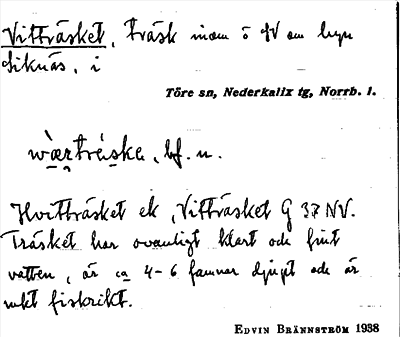 Vitträsket, träsk inom ö NV om byn
Siknäs, i
Töre sn, Nederkalix tg, Norrb. l.
wærtréska, bf. n.
Hvitträsket ek, Vitträsket G 37 NV.
Träsket har ovanligt klart och fint
vatten, är ca 4-6 famnar djupt och är
rikt fiskrikt.
EDVIN BRÄNNSTRÖM 1938